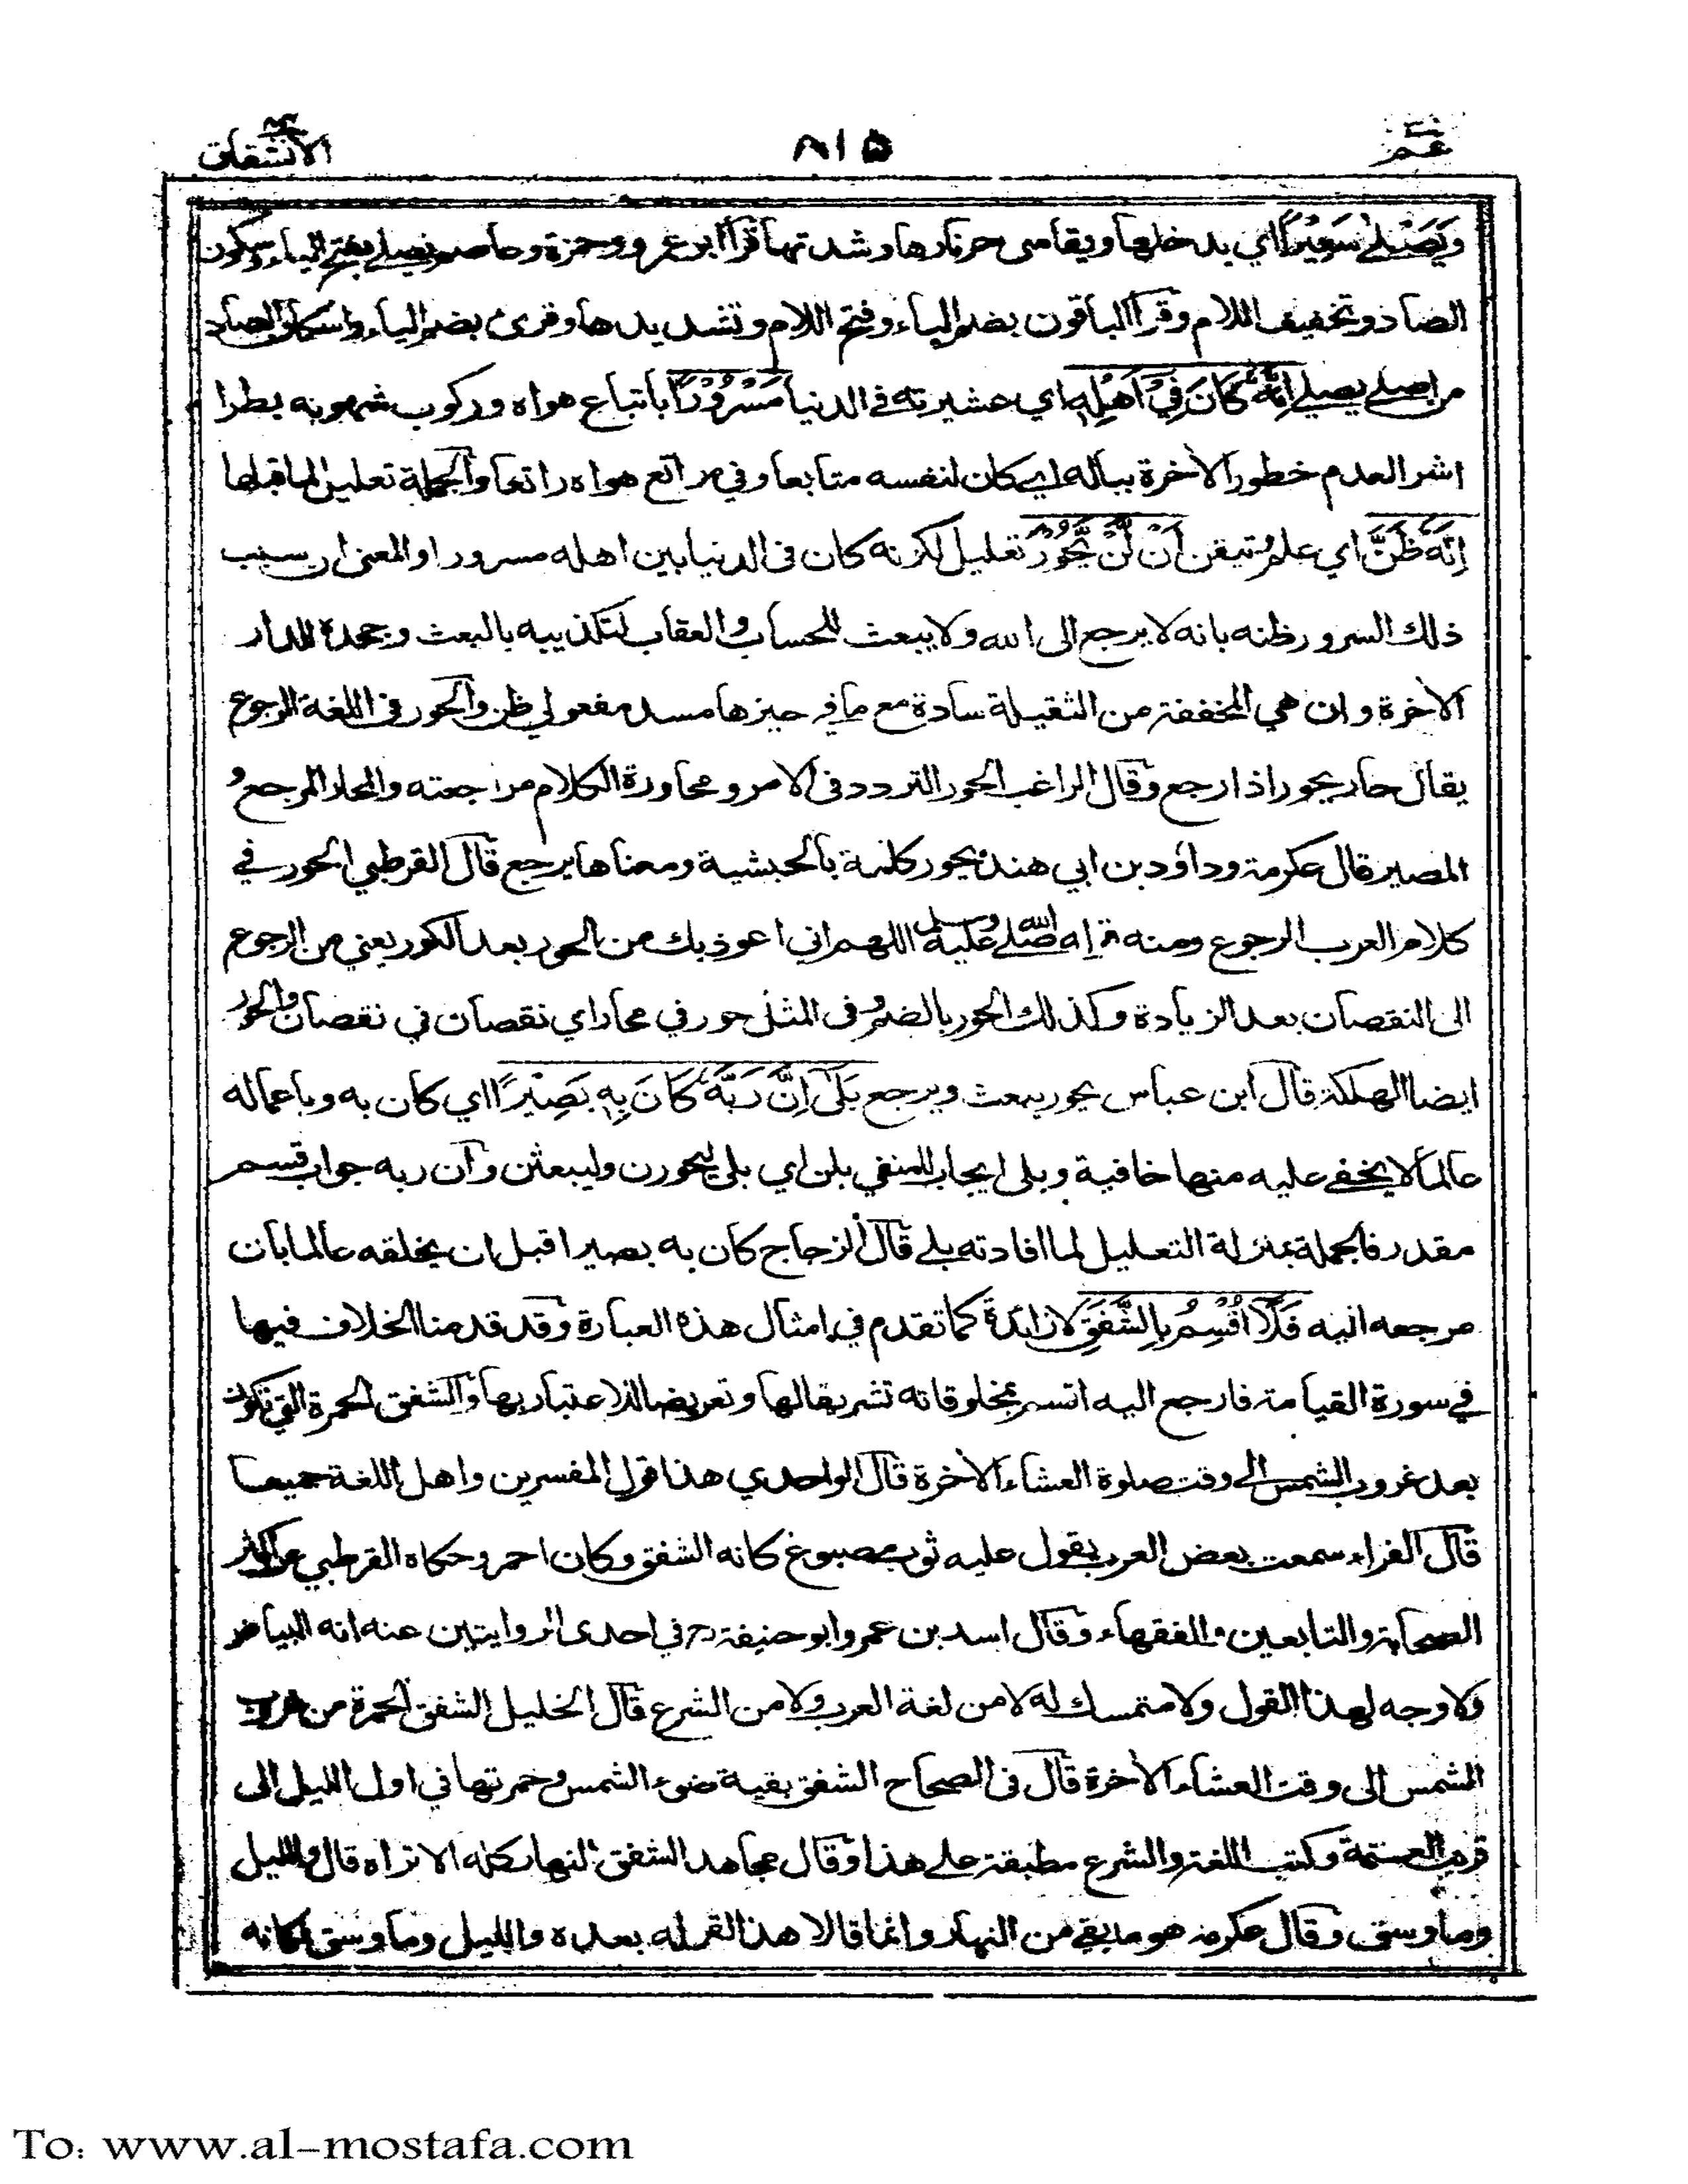 عم
٨١٥
الانشقاق
وَيَصْلٰى سَعِيْرًا اي يدخلها ويقاسى حر نارها وشدتها قرأ ابو عمرو وحمزة وعاصم يصلى بفتح الياء وسكون
الصاد وتخفيف اللام وقرأ الباقون بضم الياء وفتح اللام وتشديدها وقرئ بضم الياء واسكان الصاد
من اصلى يصلي اِنَّهٗ كَانَ فِيْ اَهْلِهٖ اي عشيرته في الدنيا مَسْرُوْرًا باتباع هواه وركوب شهوته بطرا
اشر العدم خطور الاخرة بباله اي كان لنفسه متابعا وفي مراتع هواه راتعا والجملة تعليل لما قبلها
اِنَّهٗ ظَنَّ اي علم وتيقن اَنْ لَّنْ يَّحُوْرَ تعليل لكونه كان فى الدنيا بين اهله مسرورا والمعنى ان سبب
ذلك السرور ظنه بانه لا يرجع الى الله ولا يبعث للحساب والعقاب لتكذيبه بالبعث وجحده للدار
الاخرة وان هي المخففة من الثقيلة سادة مع ما في حيزها مسد مفعولي ظن والحور فى اللغة الرجوع
يقال حار يحور اذا رجع وقال الراغب الحور التردد فى الامر ومحاورة الكلام مراجعته والمحار المرجع و
المصير قال عكرمة وداؤد بن ابي هند يحور كلمة بالحبشية ومعناها يرجع قال القرطبي الحور في
كلام العرب الرجوع ومنه قوله صلى الله عليه وسلم اللهم اني اعوذ بك من الحور بعد الكور يعني من الرجوع
الى النقصان بعد الزيادة وكذلك الحور بالضم وفى المثل حور في محار اي نقصان في نقصان والحور
ايضا الهلكة قال ابن عباس يحور يبعث ويرجع بَلٰٓى اِنَّ رَبَّهٗ كَانَ بِهٖ بَصِيْرًا اي كان به وباعماله
عالما لا يخفى عليه منها خافية وبلى ايجاب للمنفي بلن اي بلى ليحورن وليبعثن وان ربه جواب قسم
مقدر فالجملة بمنزلة التعليل لما افادته بلى قال الزجاج كان به بصيرا قبل ان يخلقه عالما بان
مرجعه اليه فَلَآ اُقْسِمُ بِالشَّفَقِ لا زائدة كما تقدم في امثال هذه العبارة وقد قدمنا الخلاف فيها
في سورة القيامة فارجع اليه اقسم بمخلوقاته تشريفا لها وتعريضا للاعتبار بها والشفق الحمرة التي تكون
بعد غروب الشمس الى وقت صلوة العشاء الاخرة قال الواحدي هذا قول المفسرين واهل اللغة جميعا
قال الفراء سمعت بعض العرب يقول عليه ثوب مصبوغ كانه الشفق وكان احمر وحكاه القرطبي عن اكثر
الصحابة والتابعين والفقهاء وقال اسد بن عمرو وابو حنيفة رح في احدى الروايتين عنه انه البياض
ولا وجه لهذا القول ولا متمسك له لا من لغة العرب ولا من الشرع قال الخليل الشفق الحمرة من غروب
الشمس الى وقت العشاء الاخرة قال فى الصحاح الشفق بقية ضوء الشمس وحمرتها في اول الليل الى
قريب العتمة وكتب اللغة والشرع مطبقة على هذا وقال مجاهد الشفق النهار كله الا تراه قال والليل
وما وسق وقال عكرمة هو ما بقي من النهار وانما قالا هذا القوله بعده والليل وما وسق فكانه
To: www.al-mostafa.com